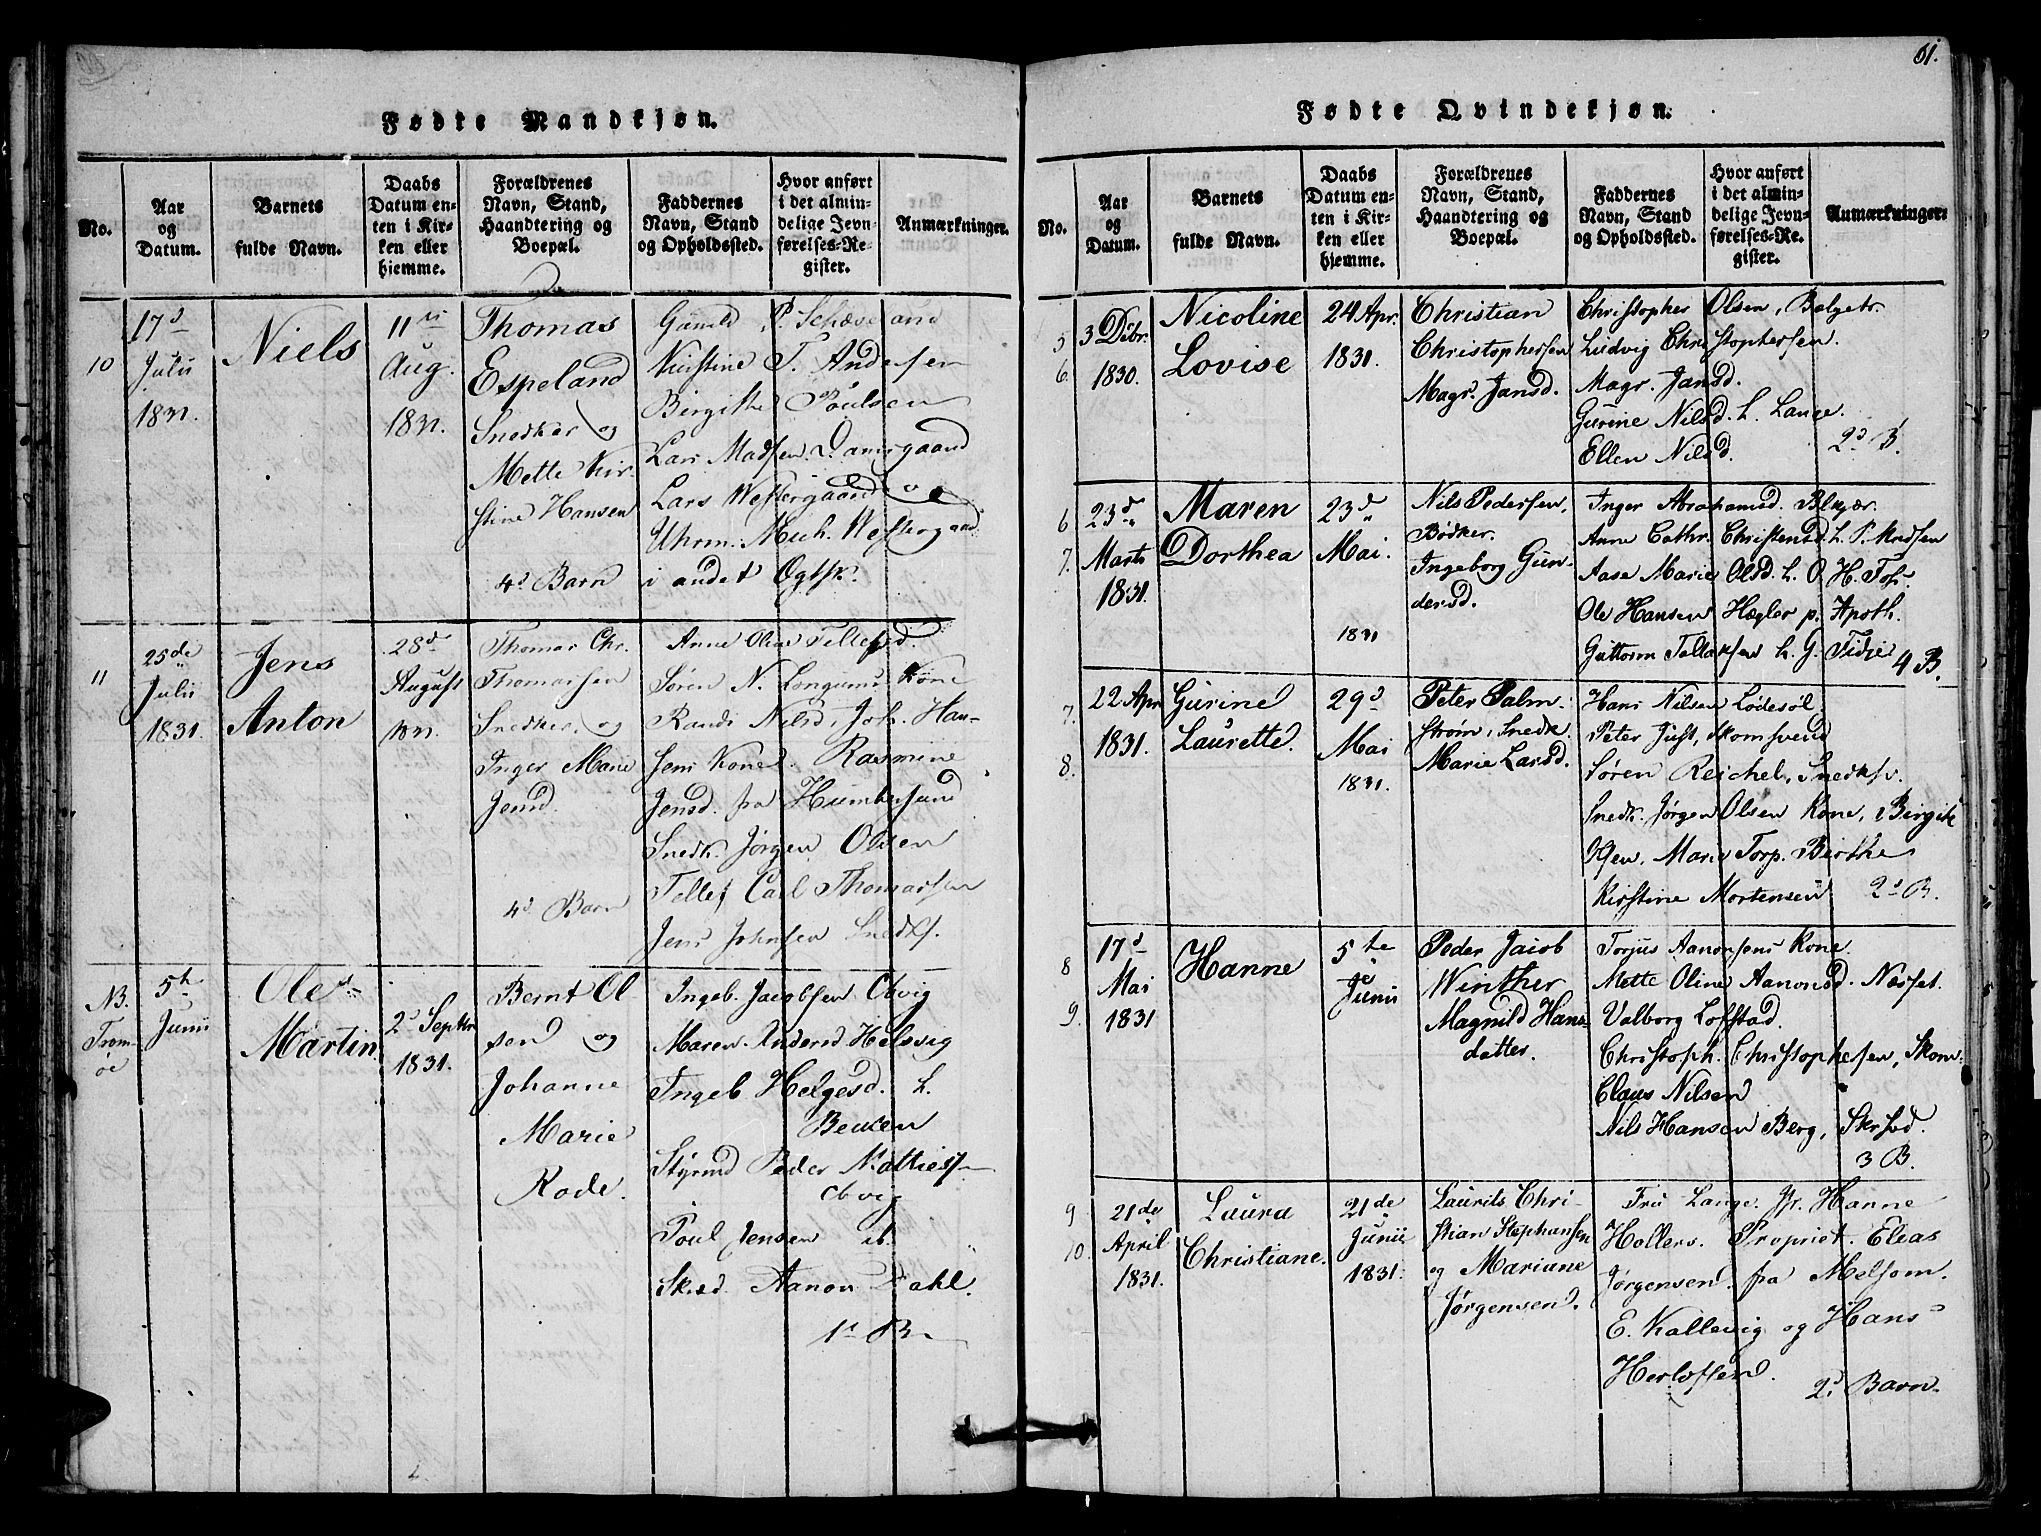 61.
Fødte Mandkjøn.
No.
Aar og Datum.
Barnets fulde Navn.
Daabs Datum enten i Kirken eller hjemme.
Forældrenes Navn, Stand, Haandtering og Boepæl.
Faddernes Navn, Stand og Opholdssted.
Hvor anført i det almindelige Jevnførelses-Register.
Anmærkninger.
10
17d
Julii
1831.
Niels
11te
Aug.
1831.
Thomas
Espeland
Snedker og
Mette Kir-
stine Hansen
4d Barn
Kirstine T. Andersen
Birgithe Poulsen
Lars Madsen Damsgaard
Lars Westergaard
Uhrm. Mich. Westergaard
i andet Ogtsk.
11
25de
Julii
1831.
Jens
Anton
28d
August
1831.
Thomas Chr.
Thomassen
Snedker, og
Inger Marie
Jensd.
4d Barn
Anne Oline Tellefsd.
Søren N. Longums Kone
Randi Nilsd, Joh. Han-
sens Kone. Rasmine
Jensd. fra Humbersund
Snedk. Jørgen Olsen
Tellef Carl Thomassen
Jens Johnsen Snedks.
NB.
Trom-
øe
5te
Junii
Ole
Martin
2d Septbr
1831.
Bernt Ol-
sen og
Johanne
Marie
Rode.
Ingeb. Jacobsen
Maren Andersd Helsvig
Ingeb Helgesd. h.
Styrmd Peder Mathies
Poul Jensen ib.
Aanon Dahl.
1t B.
Fødte Qvindekjøn.
No.
Aar og Datum.
Barnets fulde Navn.
Daabs Datum enten i Kirken eller hjemme.
Forældrenes Navn, Stand, Haandtering og Boepæl.
Faddernes Navn, Stand og Opholdssted.
Hvor anført i det almindelige Jevnførelses-Register.
Anmærkninger.
5
6.
3 Debr.
1830.
Nicoline
Lovise
24 Apr.
1831.
Christian
Christophersen
Magr. Jansd.
Christopher Olsen,
Ludvig Christophersen.
Magr. Jansd.
Gurine Nilsd. h. Lange.
Ellen Nilsd.
2d B.
6
7.
23d
Marts
1831.
Maren
Dorthea
23d
Mai.
1831
Nils Pedersen,
Bødker.
Ingeborg Gun-
dersd.
Inger Abrahamsd.
Anne Cathr. Christensd. h. P. Kndsen
Aase Marie Olsd. h. O. H.
Ole Hansen Hægler p. Apoth.
Guttorm Tellefsen h. G. Fidje
4 B.
7.
8.
22 Apr
1831.
Gurine
Laurette.
29d
Mai
1831.
Peter Palm-
strøm, Snedk.
Marie Larsd.
Hans Nilsen Lødesøl.
Peter Just, Skomsvend
Søren Reichel, Snedksv.
Snedk. Jørgen Olsen Kone, Birgit
Marie Torp. Birthe
Kirstine Mortensen
2d B.
8
9.
17d
Mai
1831
Hanne
5te
Junii
Peder Jacob
Winther
Magnild Hans-
datter.
Torjus Aanonsens Kone.
Mette Oline Aanonsd. Næsset.
Valborg Lofstad.
Christoph. Christophersen, Skom.
Claus Nilsen
Nils Hansen Berg,
3 B.
9
10.
21de
April
1831.
Laura
Christiane.
21de
Junii
1831.
Laurits Chri-
stian Stephansen
og Mariane
Jørgensen.
Fru Lange. Jf. Hanne
Hollers. Propriet. Eleas
Jørgensen fra Melsom.
E. Kallevig og Hans
Herlofsen.
2d Barn.